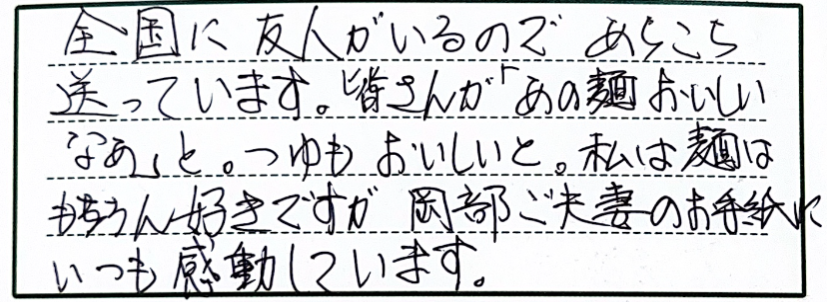 全国に友人がいるのであちこち
送っています。皆さんが「あの麺おいしい
なあ」と。つゆもおいしいと。私は麺は
もちろん好きですが岡部ご夫妻のお手紙に
いつも感動しています。